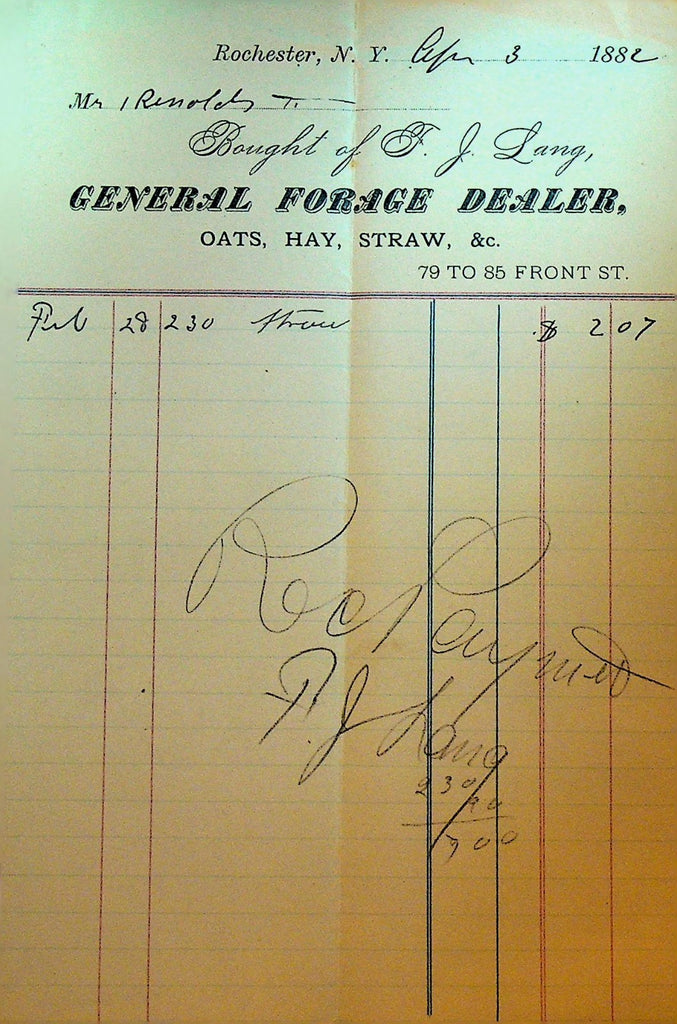 Rochester, N. Y. Apr 3 1882
Mr Renolds
Bought of F. J. Lang,
GENERAL FORAGE DEALER,
OATS, HAY, STRAW, &c.
79 TO 85 FRONT ST.
Feb 28 230 Straw $ 2 07
Rec Payment
F. J. Lang
230
90